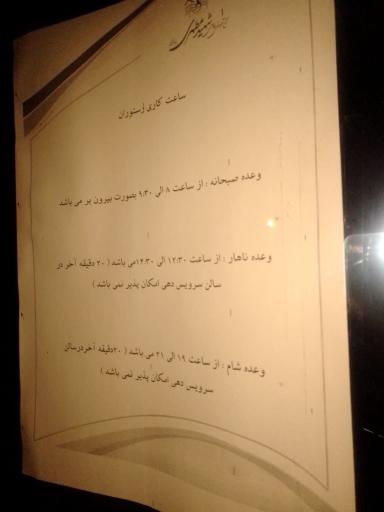 شهید مطهری
ساعت کاری رستوران
وعده صبحانه : از ساعت ۸ الی ۹:۳۰ بصورت بیرون بر می باشد
وعده ناهار : از ساعت ۱۲:۳۰ الی ۱۴:۳۰می باشد ( ۲۰ دقیقه آخر در
سالن سرویس دهی امکان پذیر نمی باشد )
وعده شام : از ساعت ۱۹ الی ۲۱ می باشد ( ۲۰دقیقه آخردرسالن
سرویس دهی امکان پذیر نمی باشد )